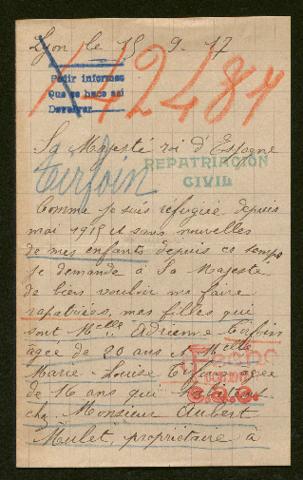 Lyon le 15-9-17
Pedir informes
Que se hace asi
142484
Sa Majesté roi d'Espagne
REPATRIACIÓN
CIVIL
Terfoin
Comme je suis réfugiée depuis
mai 1915 et sans nouvelles
de mes enfants depuis ce temps
je demande à Sa Majesté
de bien vouloir me faire
rapatriées, mes filles qui
sont Melle Adrienne Terfoin
agée de 20 ans et Melle
Marie-Louise agée
de 16 ans qui
chez Monsieur Aubert
Mulet, propriétaire à